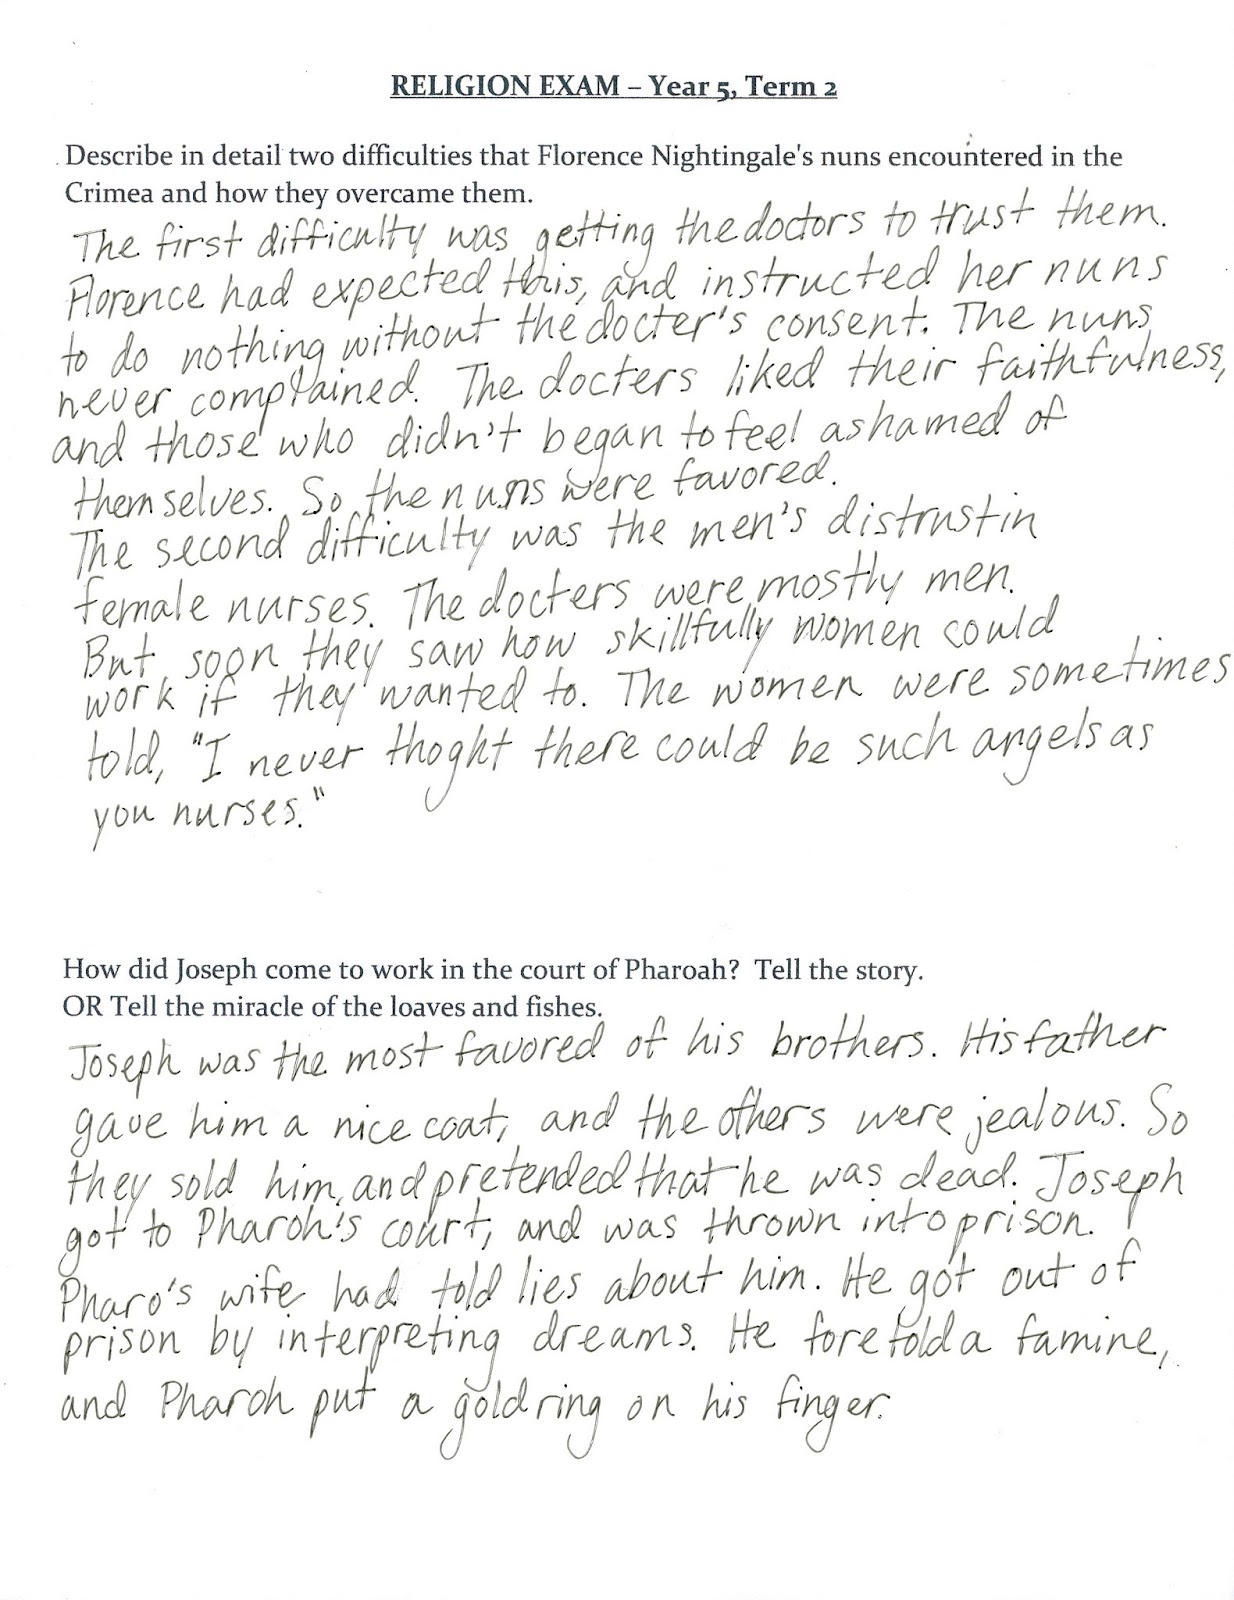 RELIGION EXAM – Year 5, Term 2
Describe in detail two difficulties that Florence Nightingale's nuns encountered in the
Crimea and how they overcame them.
The first difficulty was getting the doctors to trust them.
Florence had expected this, and instructed her nuns
to do nothing without the docter's consent. The nuns
never complained. The docters liked their faithfulness,
and those who didn't began to feel ashamed of
themselves. So the nuns were favored.
The second difficulty was the men's distrust in
female nurses. The docters were mostly men.
But soon they saw how skillfully women could
work if they wanted to. The women were sometimes
told, "I never thoght there could be such angels as
you nurses."
How did Joseph come to work in the court of Pharoah? Tell the story.
OR Tell the miracle of the loaves and fishes.
Joseph was the most favored of his brothers. His father
gave him a nice coat, and the others were jealous. So
they sold him, and pretended that he was dead. Joseph
got to Pharoh's court, and was thrown into prison.
Pharo's wife had told lies about him. He got out of
prison by interpreting dreams. He foretold a famine,
and Pharoh put a gold ring on his finger.